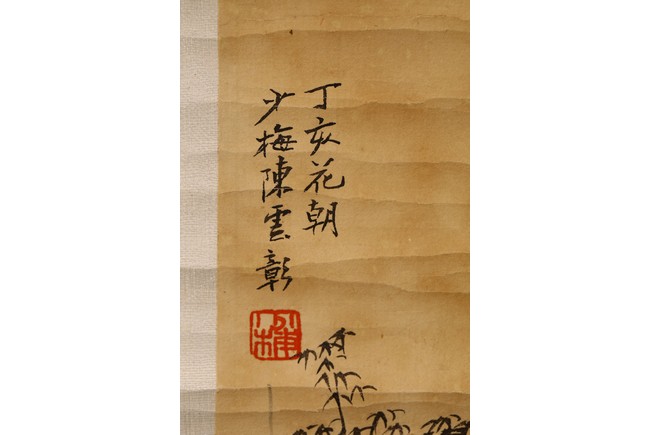 丁亥花朝
少梅陳雲彰